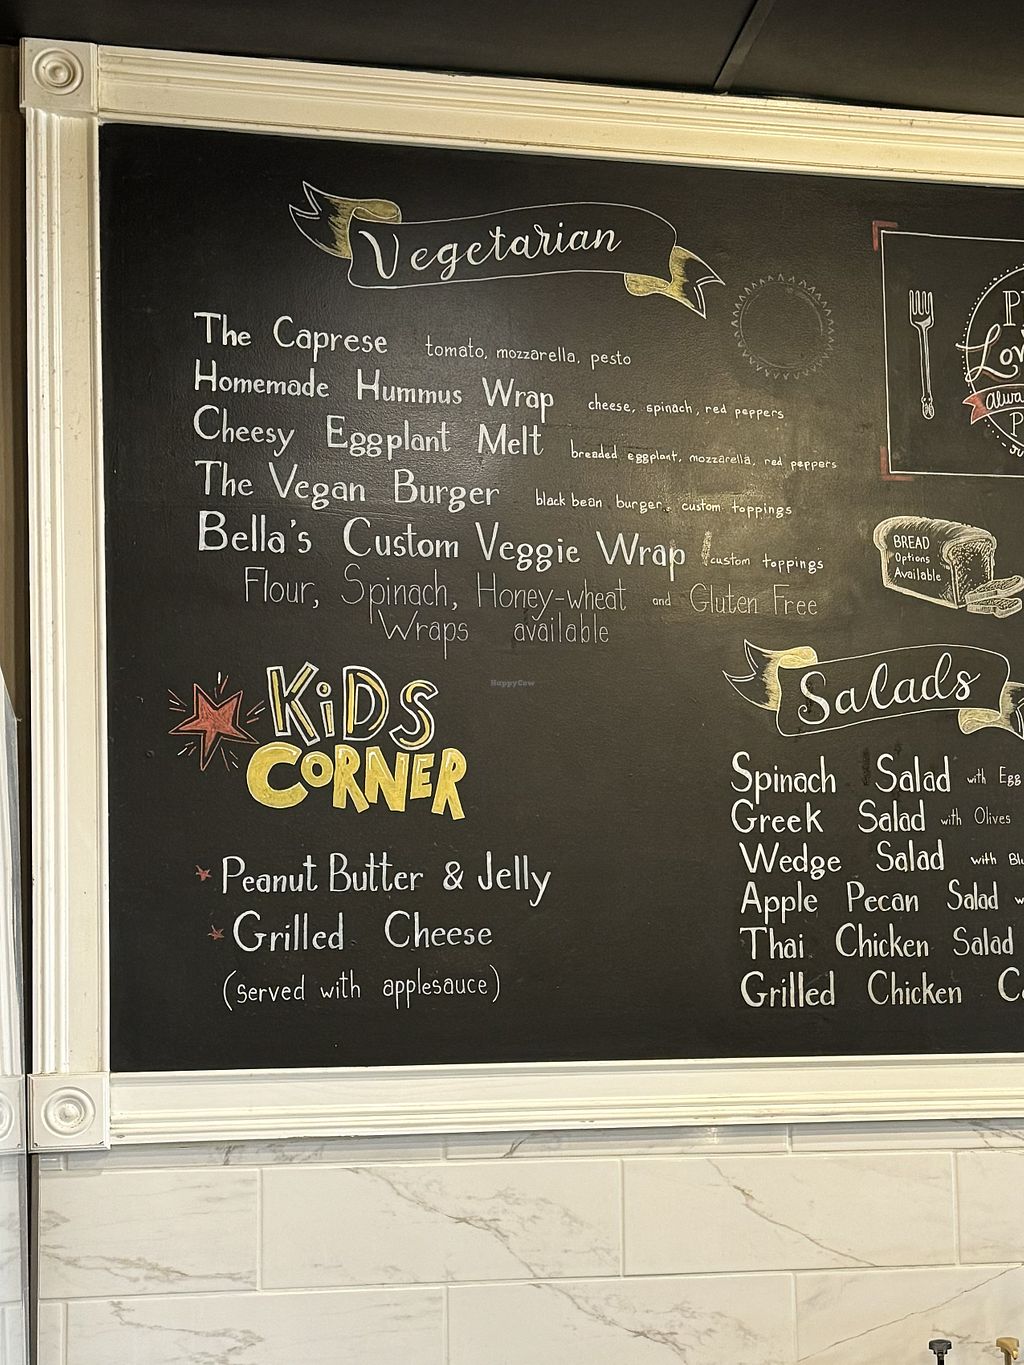 Vegetarian
The Caprese tomato, mozzarella, pesto
Homemade Hummus Wrap cheese, spinach, red peppers
Cheesy Eggplant Melt breaded eggplant, mozzarella, red peppers
The Vegan Burger black bean burger, custom toppings
Bella's Custom Veggie Wrap custom toppings
Flour, Spinach, Honey-wheat and Gluten Free
Wraps available
BREAD
Options
Available
HappyCow
KiDS
CORNER
Peanut Butter & Jelly
Grilled Cheese
(served with applesauce)
Salads
Spinach Salad with Egg
Greek Salad with Olives
Wedge Salad with
Apple Pecan Salad
Thai Chicken Salad
Grilled Chicken